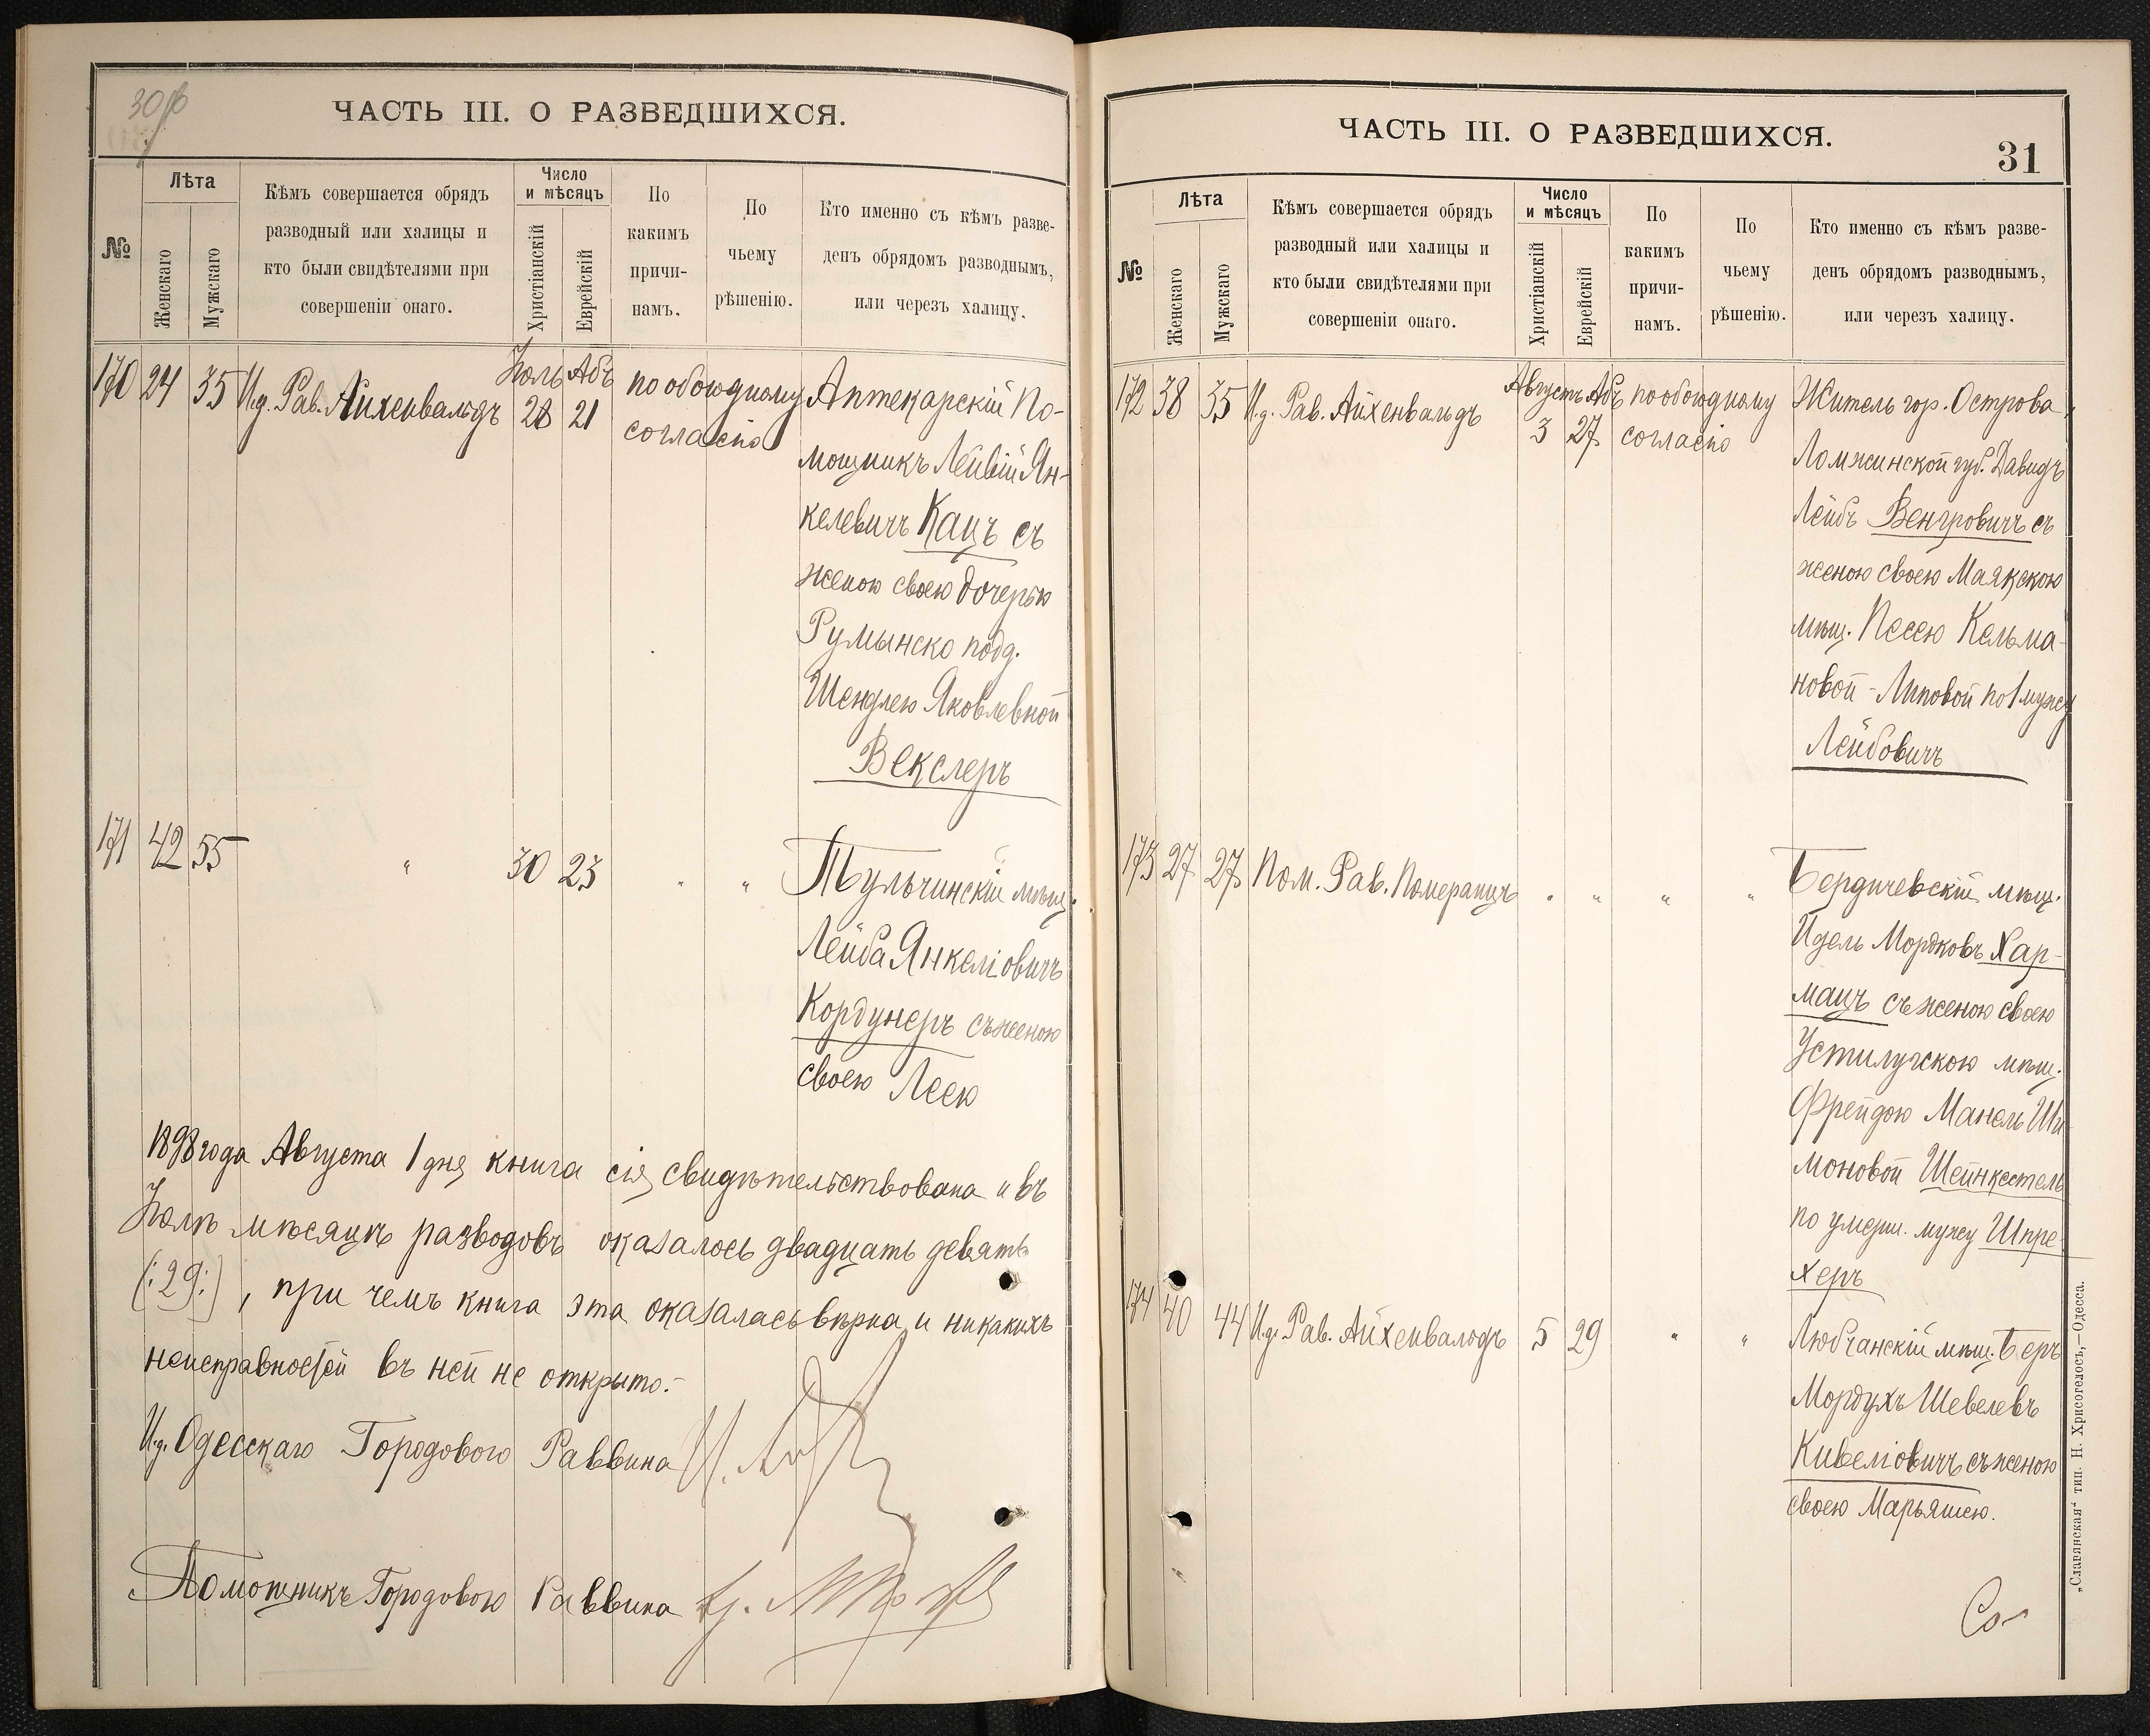 30 об
ЧАСТЬ III. О РАЗВЕДШИХСЯ.
№
Лѣта
Женскаго
Мужскаго
Кѣмъ совершается обрядъ
разводный или халицы и
кто были свидѣтелями при
совершеніи онаго.
Число
и мѣсяцъ
Христіанскій
Еврейскій
По
какимъ
причи-
намъ.
По
чьему
рѣшенію.
Кто именно съ кѣмъ разве-
денъ обрядомъ разводнымъ,
или черезъ халицу.
Іюль Абъ
170 24 35 И.д. Рав. Айхенвальдъ 28 21 по обоюдному Аптекарскій По-
согласію
мощникъ Лейвій Ян-
келевичъ Кацъ съ
женою своею дочерью
Румынско подд.
Шендлею Яковлевной
Векслеръ
171 42 55 " 30 23 " " Тульчинскій мѣщ.
Лейба Янкеліовичъ
Кордунеръ съ женою
своею Леею
1898 года Августа 1 дня книга сія свидѣтельствована и въ
Іюлѣ мѣсяцѣ разводовъ оказалось двадцать девять
(:29:), при чемъ книга эта оказалась вѣрна и никакихъ
неисправностей въ ней не открыто.-
И.д. Одесскаго Городового Раввина
Помощникъ Городового Раввина
ЧАСТЬ III. О РАЗВЕДШИХСЯ.
31
№
Лѣта
Женскаго
Мужскаго
Кѣмъ совершается обрядъ
разводный или халицы и
кто были свидѣтелями при
совершеніи онаго.
Число
и мѣсяцъ
Христіанскій
Еврейскій
По
какимъ
причи-
намъ.
По
чьему
рѣшенію.
Кто именно съ кѣмъ разве-
денъ обрядомъ разводнымъ,
или черезъ халицу.
Августъ Абъ
172 38 35 И.д. Рав. Айхенвальдъ 3 27 по обоюдному Житель гор. Острова,
согласію
Ломжинской губ. Давидъ
Лейбъ Венгровичъ съ
женою своею Маякскою
мѣщ. Песею Кельма-
новой-Липовой по 1 мужу
Лейбовичъ
173 27 27 Пом. Рав. Померанцъ " " " " Бердичевскій мѣщ.
Идель Мордковъ Хар-
мацъ съ женою своею
Устилугскою мѣщ.
Фрейдою Манель Ши-
моновой Шейнкестель
по умерш. мужу Шпре-
херъ
174 40 44 И.д. Рав. Айхенвальдъ 5 29 " " Любчанскій мѣщ. Беръ
Мордухъ Шевелевъ
Кивеліовичъ съ женою
своею Марьяшею.
Со-
„Славянская“ тип. Н. Хрисогелосъ,—Одесса.